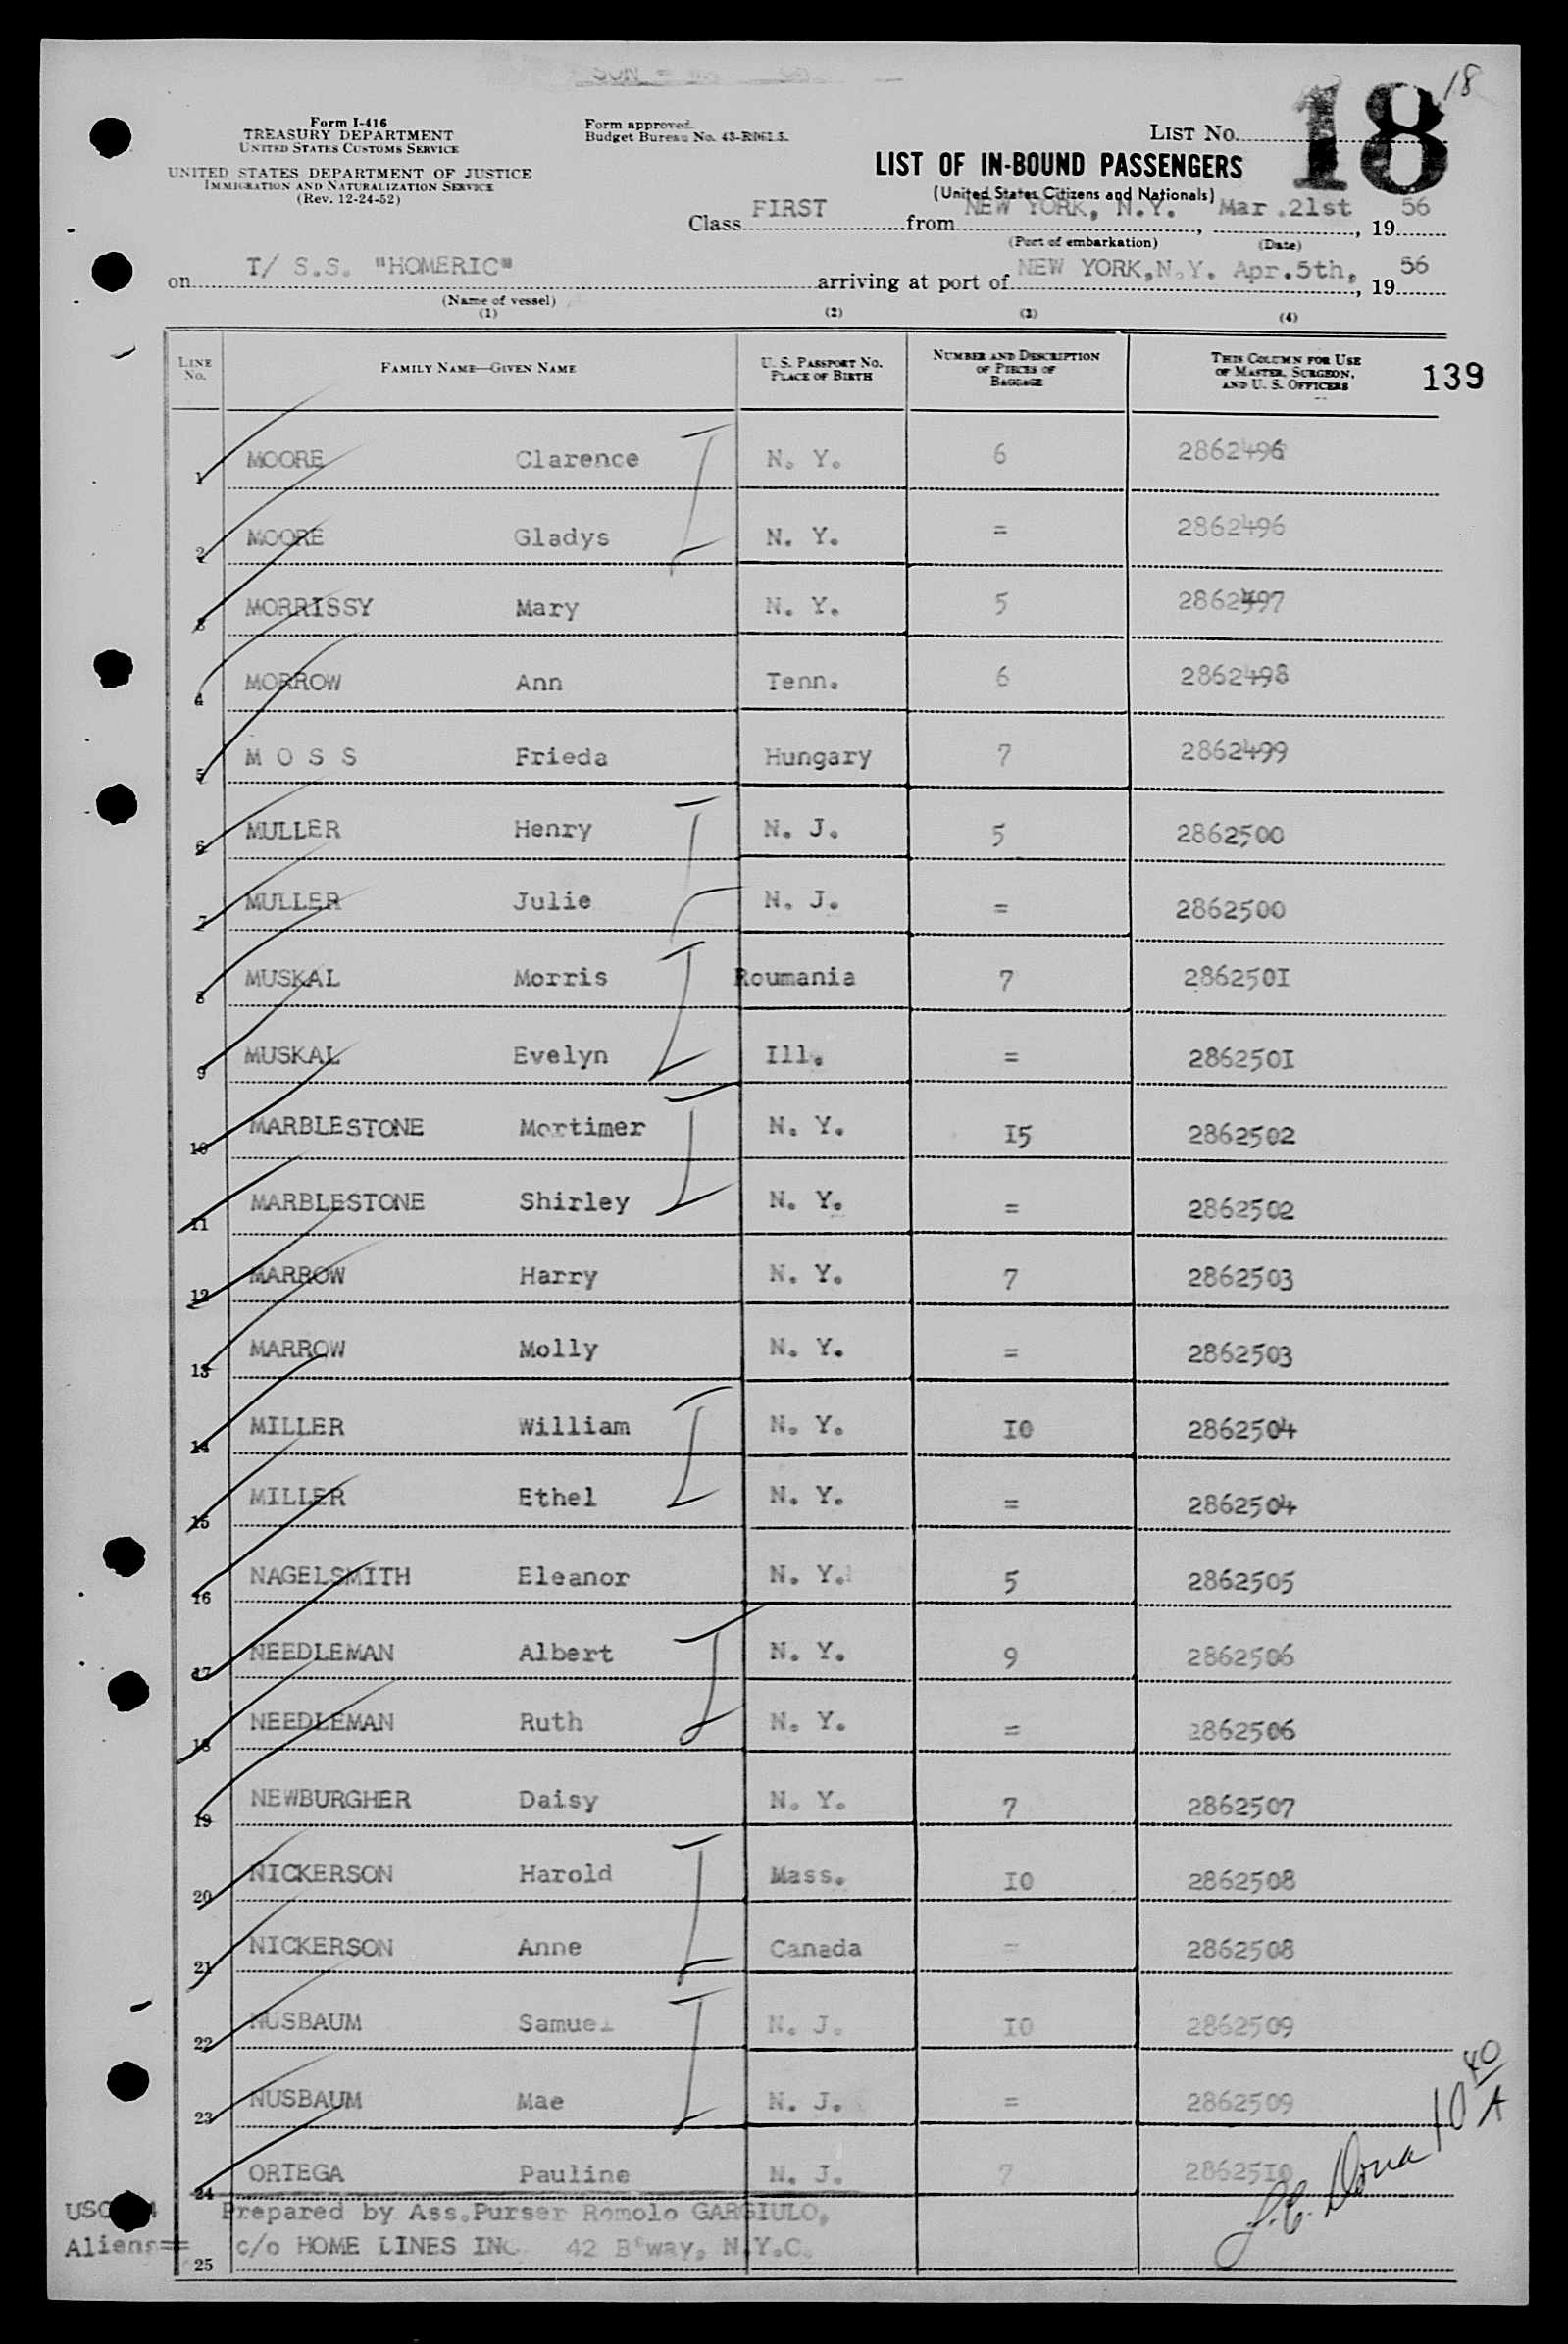 18
Form I-416
TREASURY DEPARTMENT
UNITED STATES CUSTOMS SERVICE
UNITED STATES DEPARTMENT OF JUSTICE
IMMIGRATION AND NATURALIZATION SERVICE
(Rev. 12-24-52)
Form approved.
Budget Bureau No. 43-R061.3.
LIST NO. 18
LIST OF IN-BOUND PASSENGERS
(United States Citizens and Nationals)
Class FIRST from NEW YORK, N.Y. Mar.21st, 1956
(Port of embarkation) (Date)
on T/ S.S. "HOMERIC" arriving at port of NEW YORK,N.Y. Apr.5th, 1956
(Name of vessel)
(1) (2) (3) (4)
LINE NO. FAMILY NAME—GIVEN NAME U. S. PASSPORT NO. PLACE OF BIRTH NUMBER AND DESCRIPTION OF PIECES OF BAGGAGE THIS COLUMN FOR USE OF MASTER, SURGEON, AND U. S. OFFICERS
139
1 MOORE Clarence N. Y. 6 2862496
2 MOORE Gladys N. Y. = 2862496
3 MORRISSY Mary N. Y. 5 2862497
4 MORROW Ann Tenn. 6 2862498
5 M O S S Frieda Hungary 7 2862499
6 MULLER Henry N. J. 5 2862500
7 MULLER Julie N. J. = 2862500
8 MUSKAL Morris Roumania 7 286250I
9 MUSKAL Evelyn Ill. = 286250I
10 MARBLESTONE Mortimer N. Y. I5 2862502
11 MARBLESTONE Shirley N. Y. = 2862502
12 MARROW Harry N. Y. 7 2862503
13 MARROW Molly N. Y. = 2862503
14 MILLER William N. Y. I0 2862504
15 MILLER Ethel N. Y. = 2862504
16 NAGELSMITH Eleanor N. Y. 5 2862505
17 NEEDLEMAN Albert N. Y. 9 2862506
18 NEEDLEMAN Ruth N. Y. = 2862506
19 NEWBURGHER Daisy N. Y. 7 2862507
20 NICKERSON Harold Mass. I0 2862508
21 NICKERSON Anne Canada = 2862508
22 NUSBAUM Samuel N. J. I0 2862509
23 NUSBAUM Mae N. J. = 2862509
24 ORTEGA Pauline N. J. 7 28625I0
Prepared by Ass.Purser Romolo GARGIULO,
Aliens== c/o HOME LINES INC 42 B'way, N.Y.C.
25
10 40 A